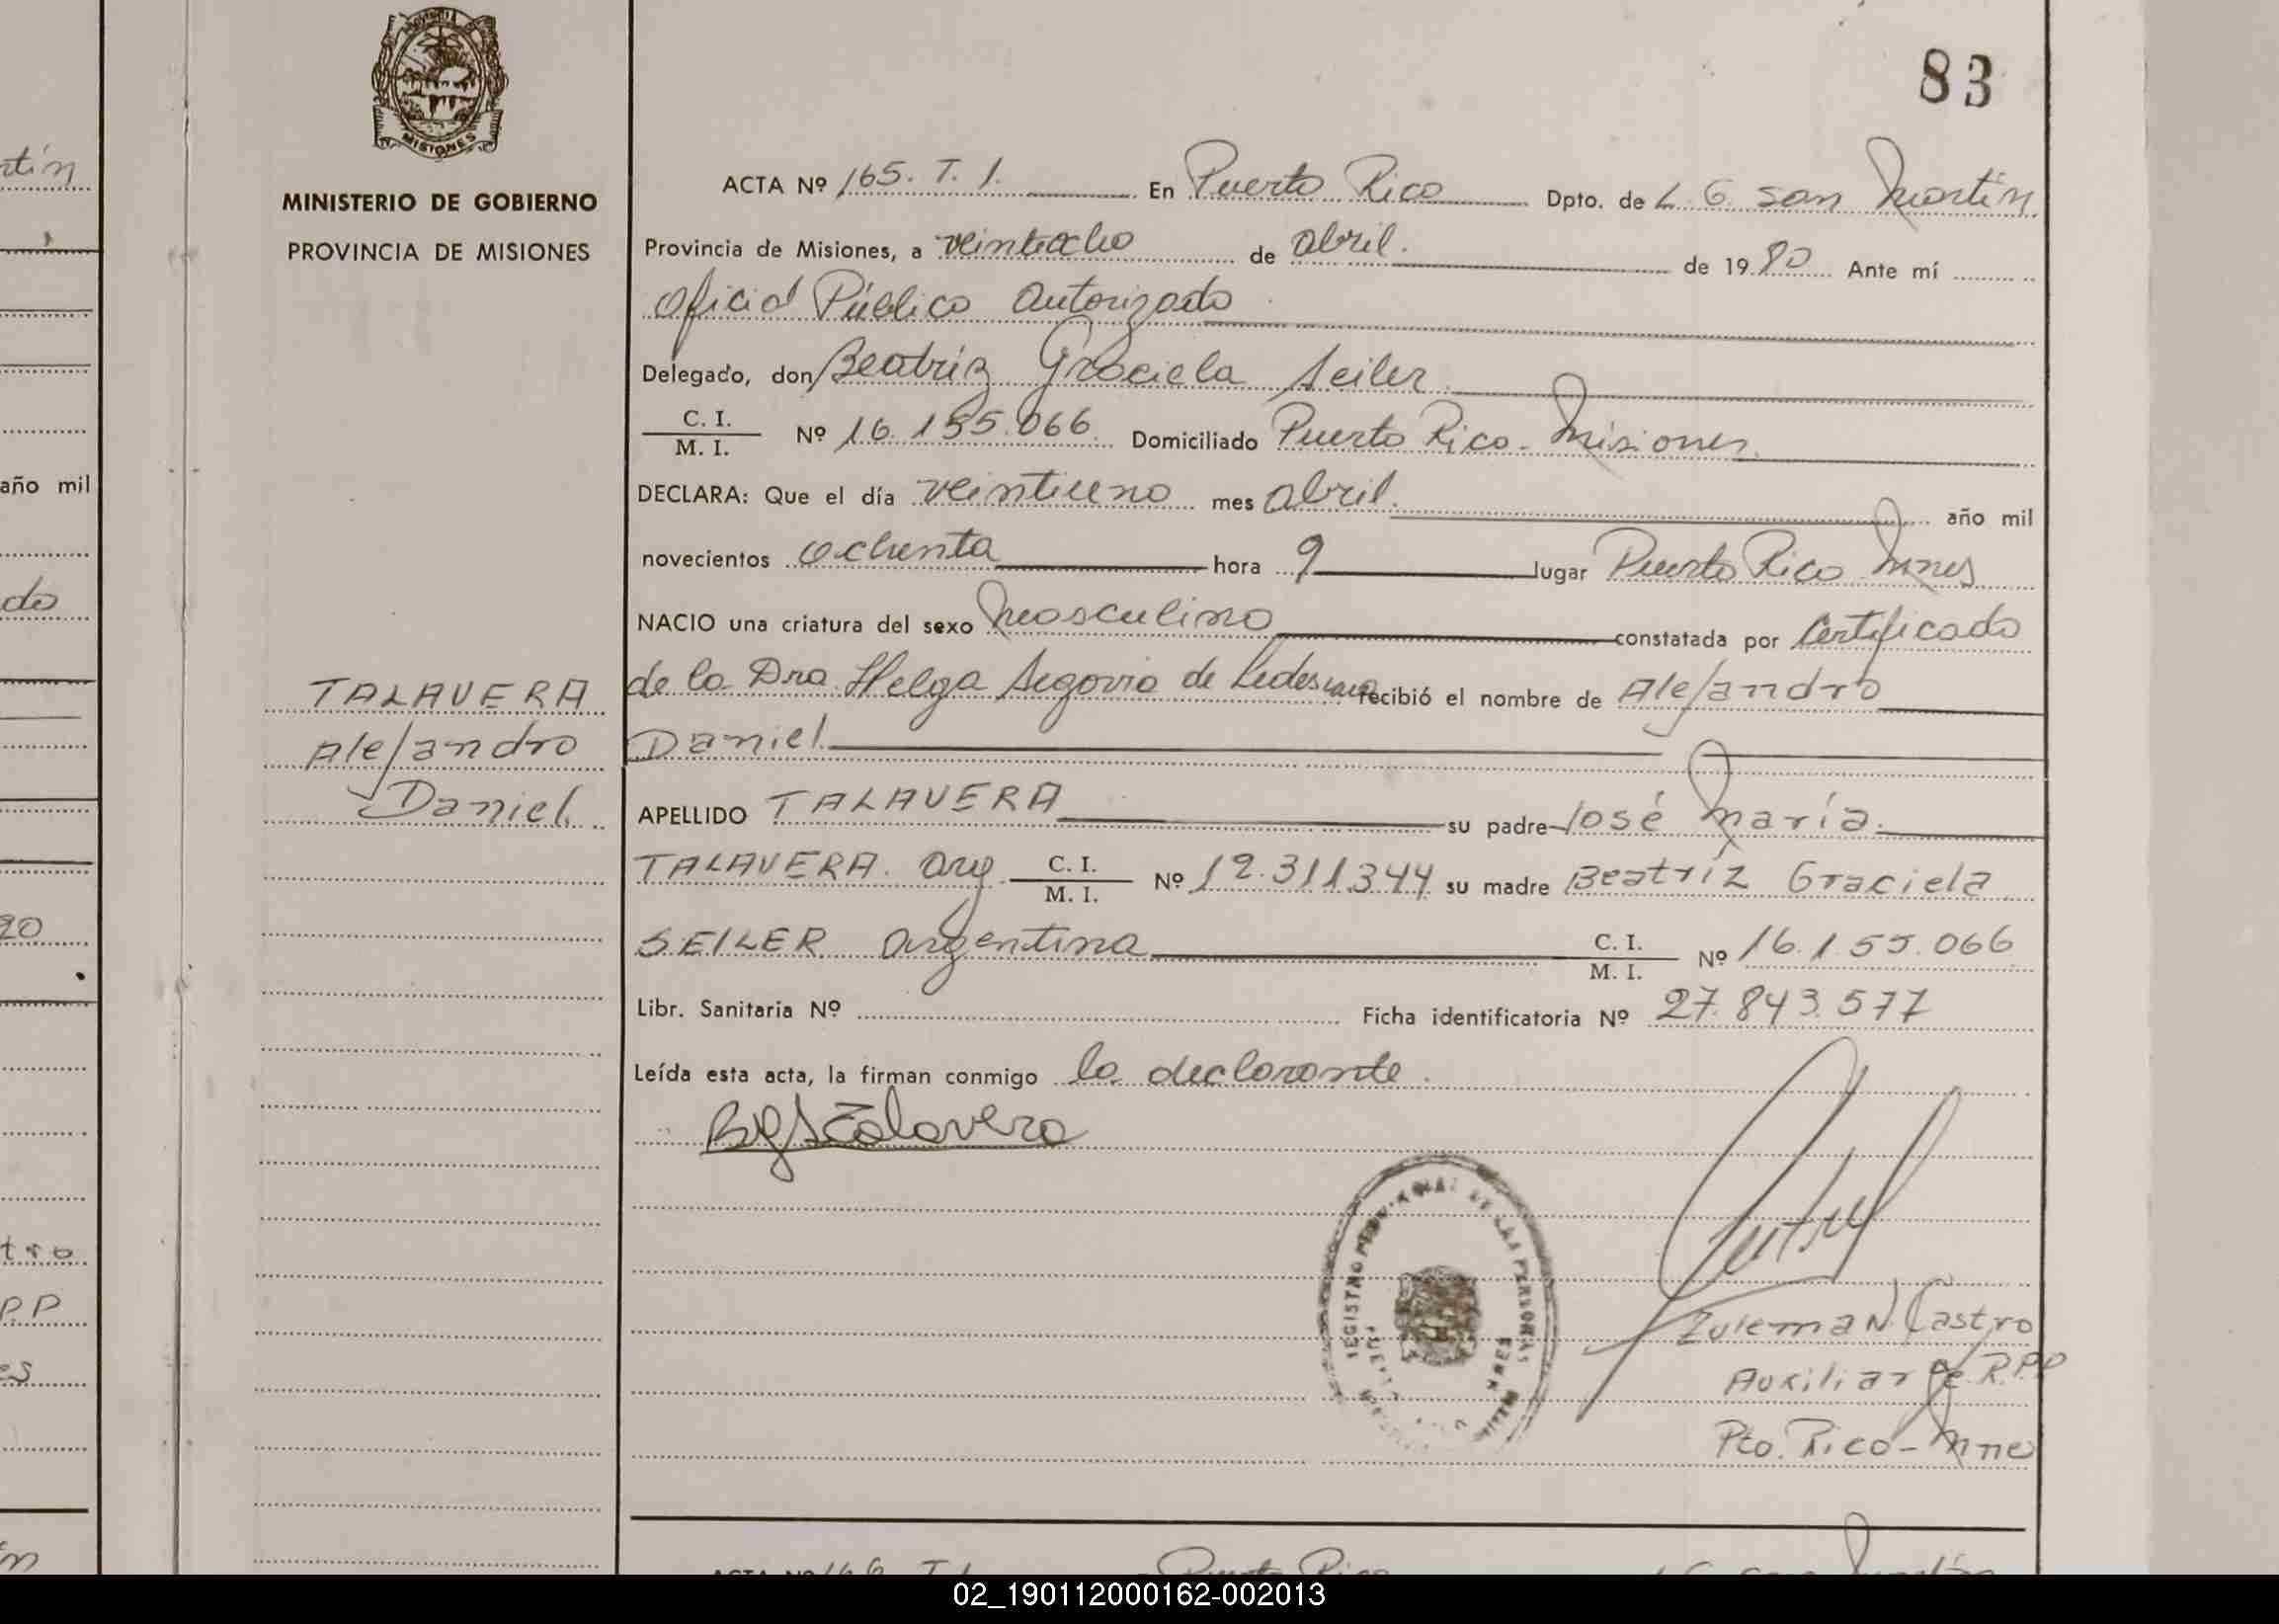 83
MISIONES
MINISTERIO DE GOBIERNO
PROVINCIA DE MISIONES
ACTA Nº 165. T. 1. En Puerto Rico Dpto. de L. G. San Martín
Provincia de Misiones, a veintiocho de abril. de 1980 Ante mí
Oficial Público Autorizado
Delegado, don Beatriz Graciela Seiler
C. I. / M. I. Nº 16.155.066 Domiciliado Puerto Rico - Misiones
DECLARA: Que el día veintiuno mes abril. año mil
novecientos ochenta hora 9 lugar Puerto Rico Mnes
NACIO una criatura del sexo Masculino constatada por Certificado
de la Dra. Helga Segovia de Ledesma recibió el nombre de Alejandro
Daniel
TALAVERA
Alejandro
Daniel
APELLIDO TALAVERA su padre José María
TALAVERA. Arg. C. I. / M. I. Nº 12.311.344 su madre Beatríz Graciela
SEILER Argentina C. I. / M. I. Nº 16.155.066
Libr. Sanitaria Nº Ficha identificatoria Nº 27.843.577
Leída esta acta, la firman conmigo la declarante.
BGSTalavera
REGISTRO PROVINCIAL DE LAS PERSONAS
Zulema N. Castro
Auxiliar de R.P.P
Pto. Rico - Mne
ACTA Nº 166 T. 1 Puerto Rico L. G. San Martín
rtín
año mil
do
20
tro
P.P
es
02_190112000162-002013